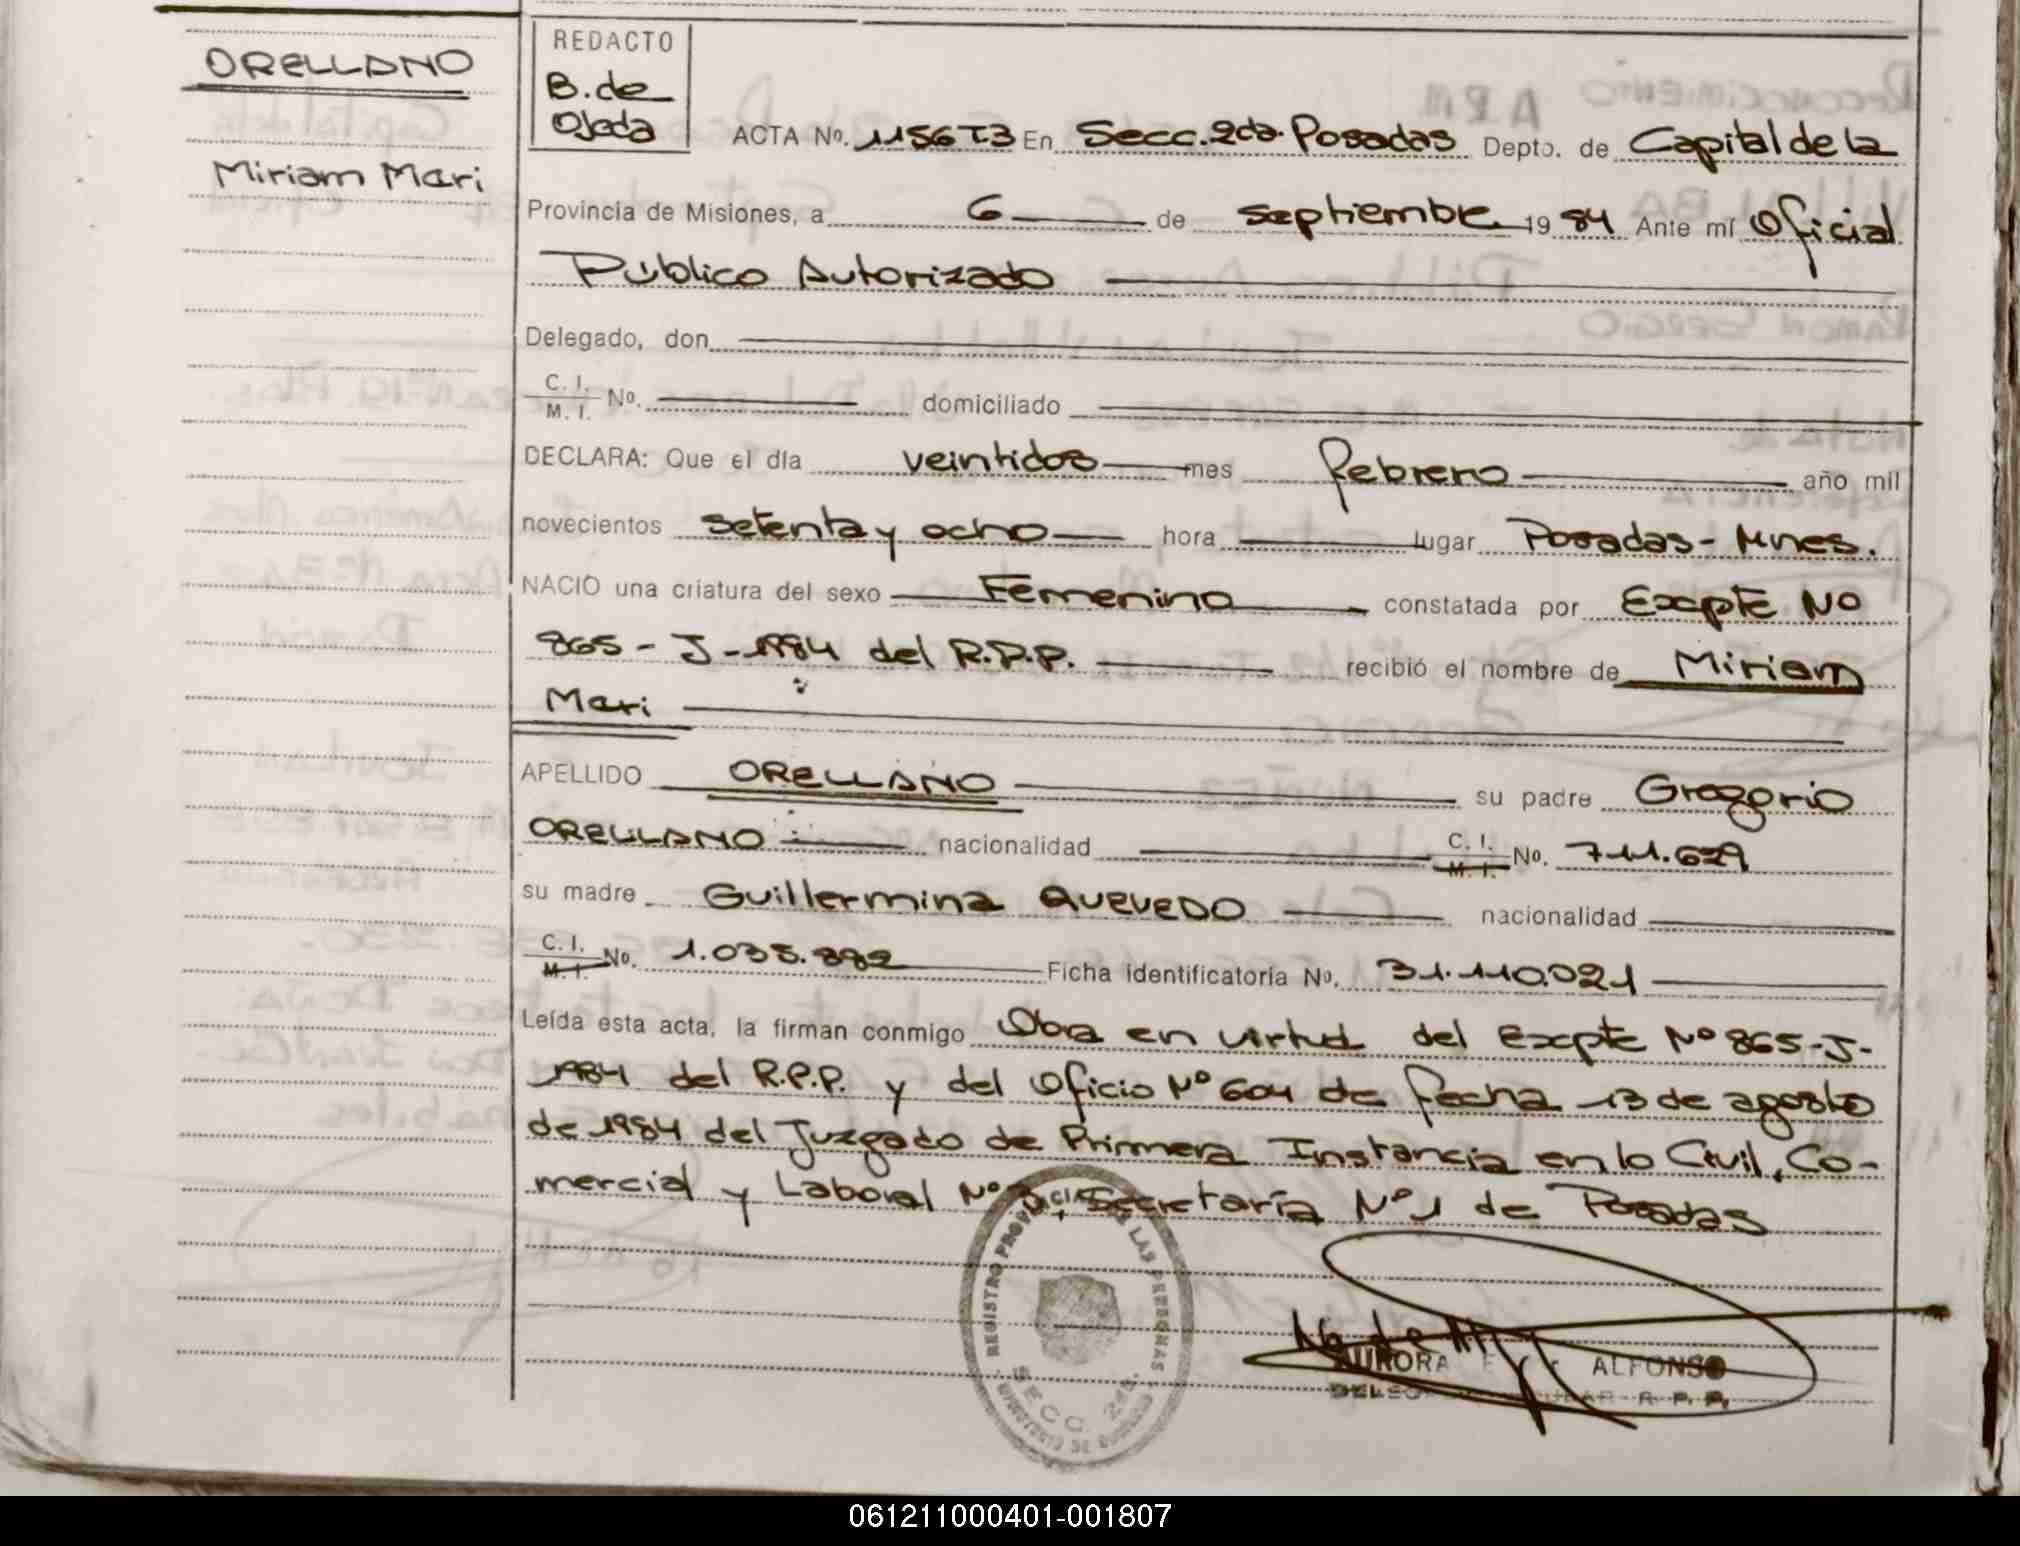 ORELLANO
Miriam Mari
REDACTO
B. de
Ojeda
ACTA No. 1156 T.3 En Secc. 2da. Posadas Depto. de Capital de la
Provincia de Misiones, a 6 de septiembre 19 84 Ante mí Oficial
Público Autorizado
Delegado, don
C. I.
M. I. No. domiciliado
DECLARA: Que el día veintidos mes febrero año mil
novecientos setenta y ocho hora lugar Posadas - Mnes.
NACIO una criatura del sexo Femenino constatada por Expte No
865 - J - 1984 del R.P.P. recibió el nombre de Miriam
Mari
APELLIDO ORELLANO su padre Gregorio
ORELLANO nacionalidad C. I. M. I. No. 711.679
su madre Guillermina QUEVEDO nacionalidad
C. I. M. I. No. 1.035.882 Ficha identificatoria No. 31.110.021
Leída esta acta, la firman conmigo Obra en virtud del Expte Nº 865-J-
1984 del R.P.P. y del Oficio Nº 604 de fecha 13 de agosto
de 1984 del Juzgado de Primera Instancia en lo Civil, Co-
mercial y Laboral Nº 3, Secretaría Nº 1 de Posadas
REGISTRO PROVINCIAL DE LAS PERSONAS
SECC. 2da.
AURORA E ALFONSO
R. P. P.
061211000401-001807